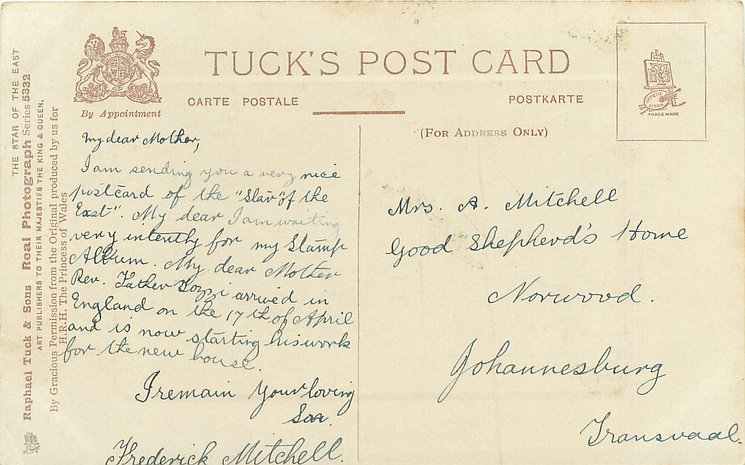 TUCK'S POST CARD
By Appointment
CARTE POSTALE
POSTKARTE
(FOR ADDRESS ONLY)
TRADE MARK
THE STAR OF THE EAST
Raphael Tuck & Sons Real Photograph Series 5332
ART PUBLISHERS TO THEIR MAJESTIES THE KING & QUEEN.
By Gracious Permission from the Original produced by us for
H.R.H. The Princess of Wales
My dear Mother,
I am sending you a very nice
postcard of the "Star of the
East". My dear I am waiting
very intently for my Stamp
Album. My dear Mother
Rev. Father Bozzi arrived in
England on the 17th of April
and is now starting his work
for the new house.
I remain Your loving
Son.
Frederick Mitchell.
Mrs. A. Mitchell
Good Shepherd's Home
Norwood.
Johannesburg
Transvaal.